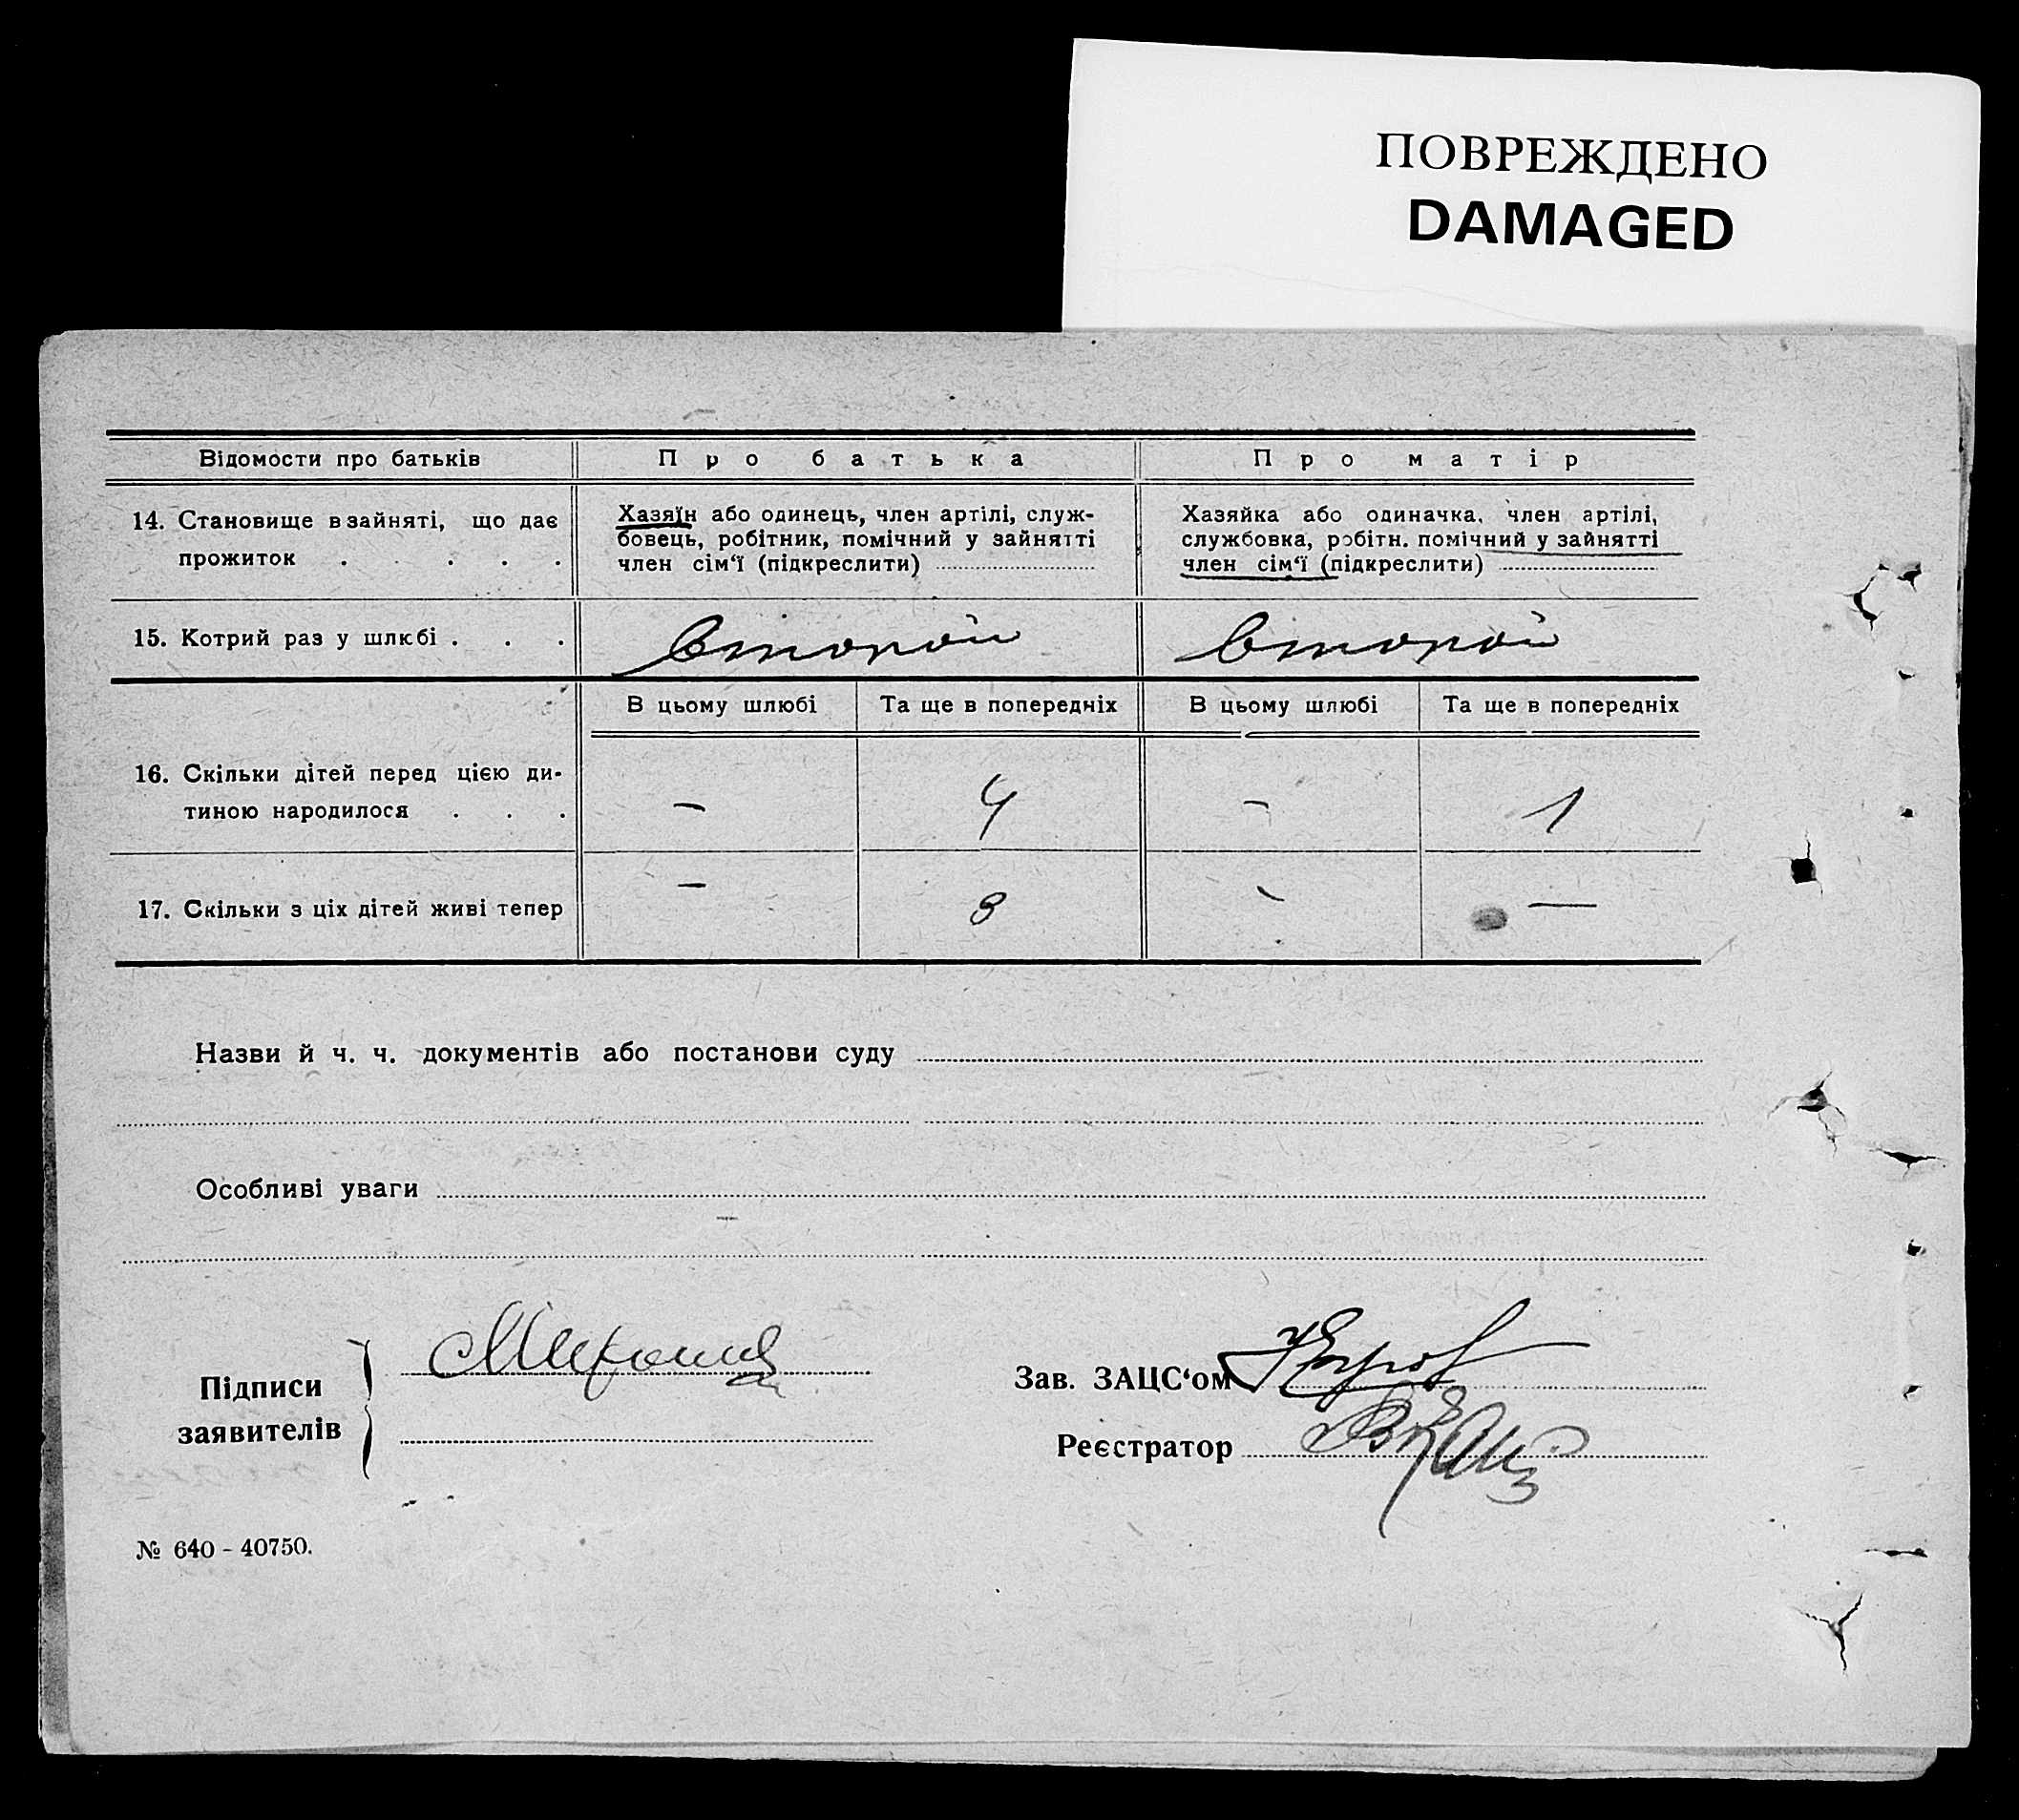 ПОВРЕЖДЕНО
DAMAGED
Відомости про батьків
Про батька
Про матір
14. Становище в зайняті, що дає
прожиток . . . . .
Хазяїн або одинець, член артілі, служ-
бовець, робітник, помічний у зайнятті
член сім‘ї (підкреслити)
Хазяйка або одиначка, член артілі,
службовка, робітн. помічний у зайнятті
член сім‘ї (підкреслити)
15. Котрий раз у шлюбі . . .
второй
второй
В цьому шлюбі
Та ще в попередніх
В цьому шлюбі
Та ще в попередніх
16. Скільки дітей перед цією ди-
тиною народилося . . .
–
4
–
1
17. Скільки з ціх дітей живі тепер
–
3
–
—
Назви й ч. ч. документів або постанови суду
Особливі уваги
Підписи
заявителів
Зав. ЗАЦС‘ом
Реєстратор
№ 640 - 40750.